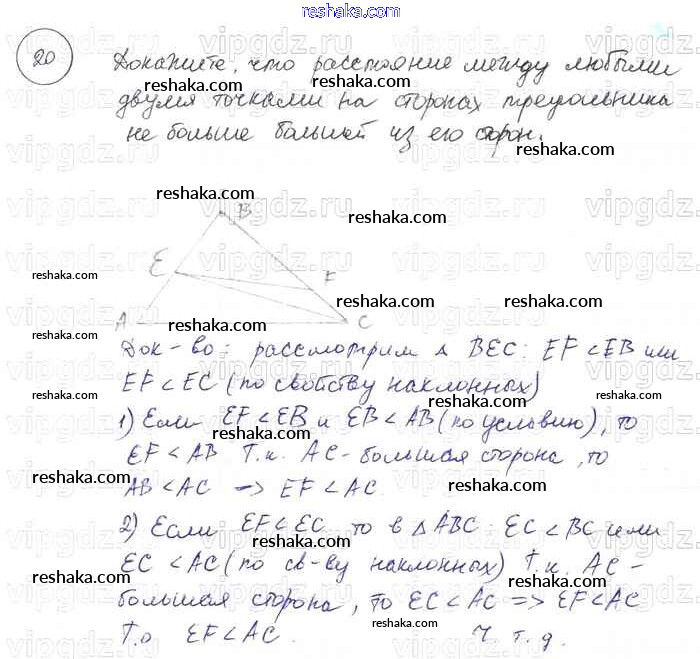 reshaka.com
20
Докажите, что расстояние между любыми
двумя точками на сторонах треугольника
не больше большей из его сторон.
B
E
F
A
C
Док-во: рассмотрим △ BEC: EF < EB или
EF < EC (по свойству наклонных)
1) Если EF < EB и EB < AB (по условию), то
EF < AB т.к. AC - большая сторона, то
AB < AC => EF < AC.
2) Если EF < EC то в △ ABC: EC < BC или
EC < AC (по св-ву наклонных) т.к. AC -
большая сторона, то EC < AC => EF < AC
Т.о EF < AC. Ч.т.д.